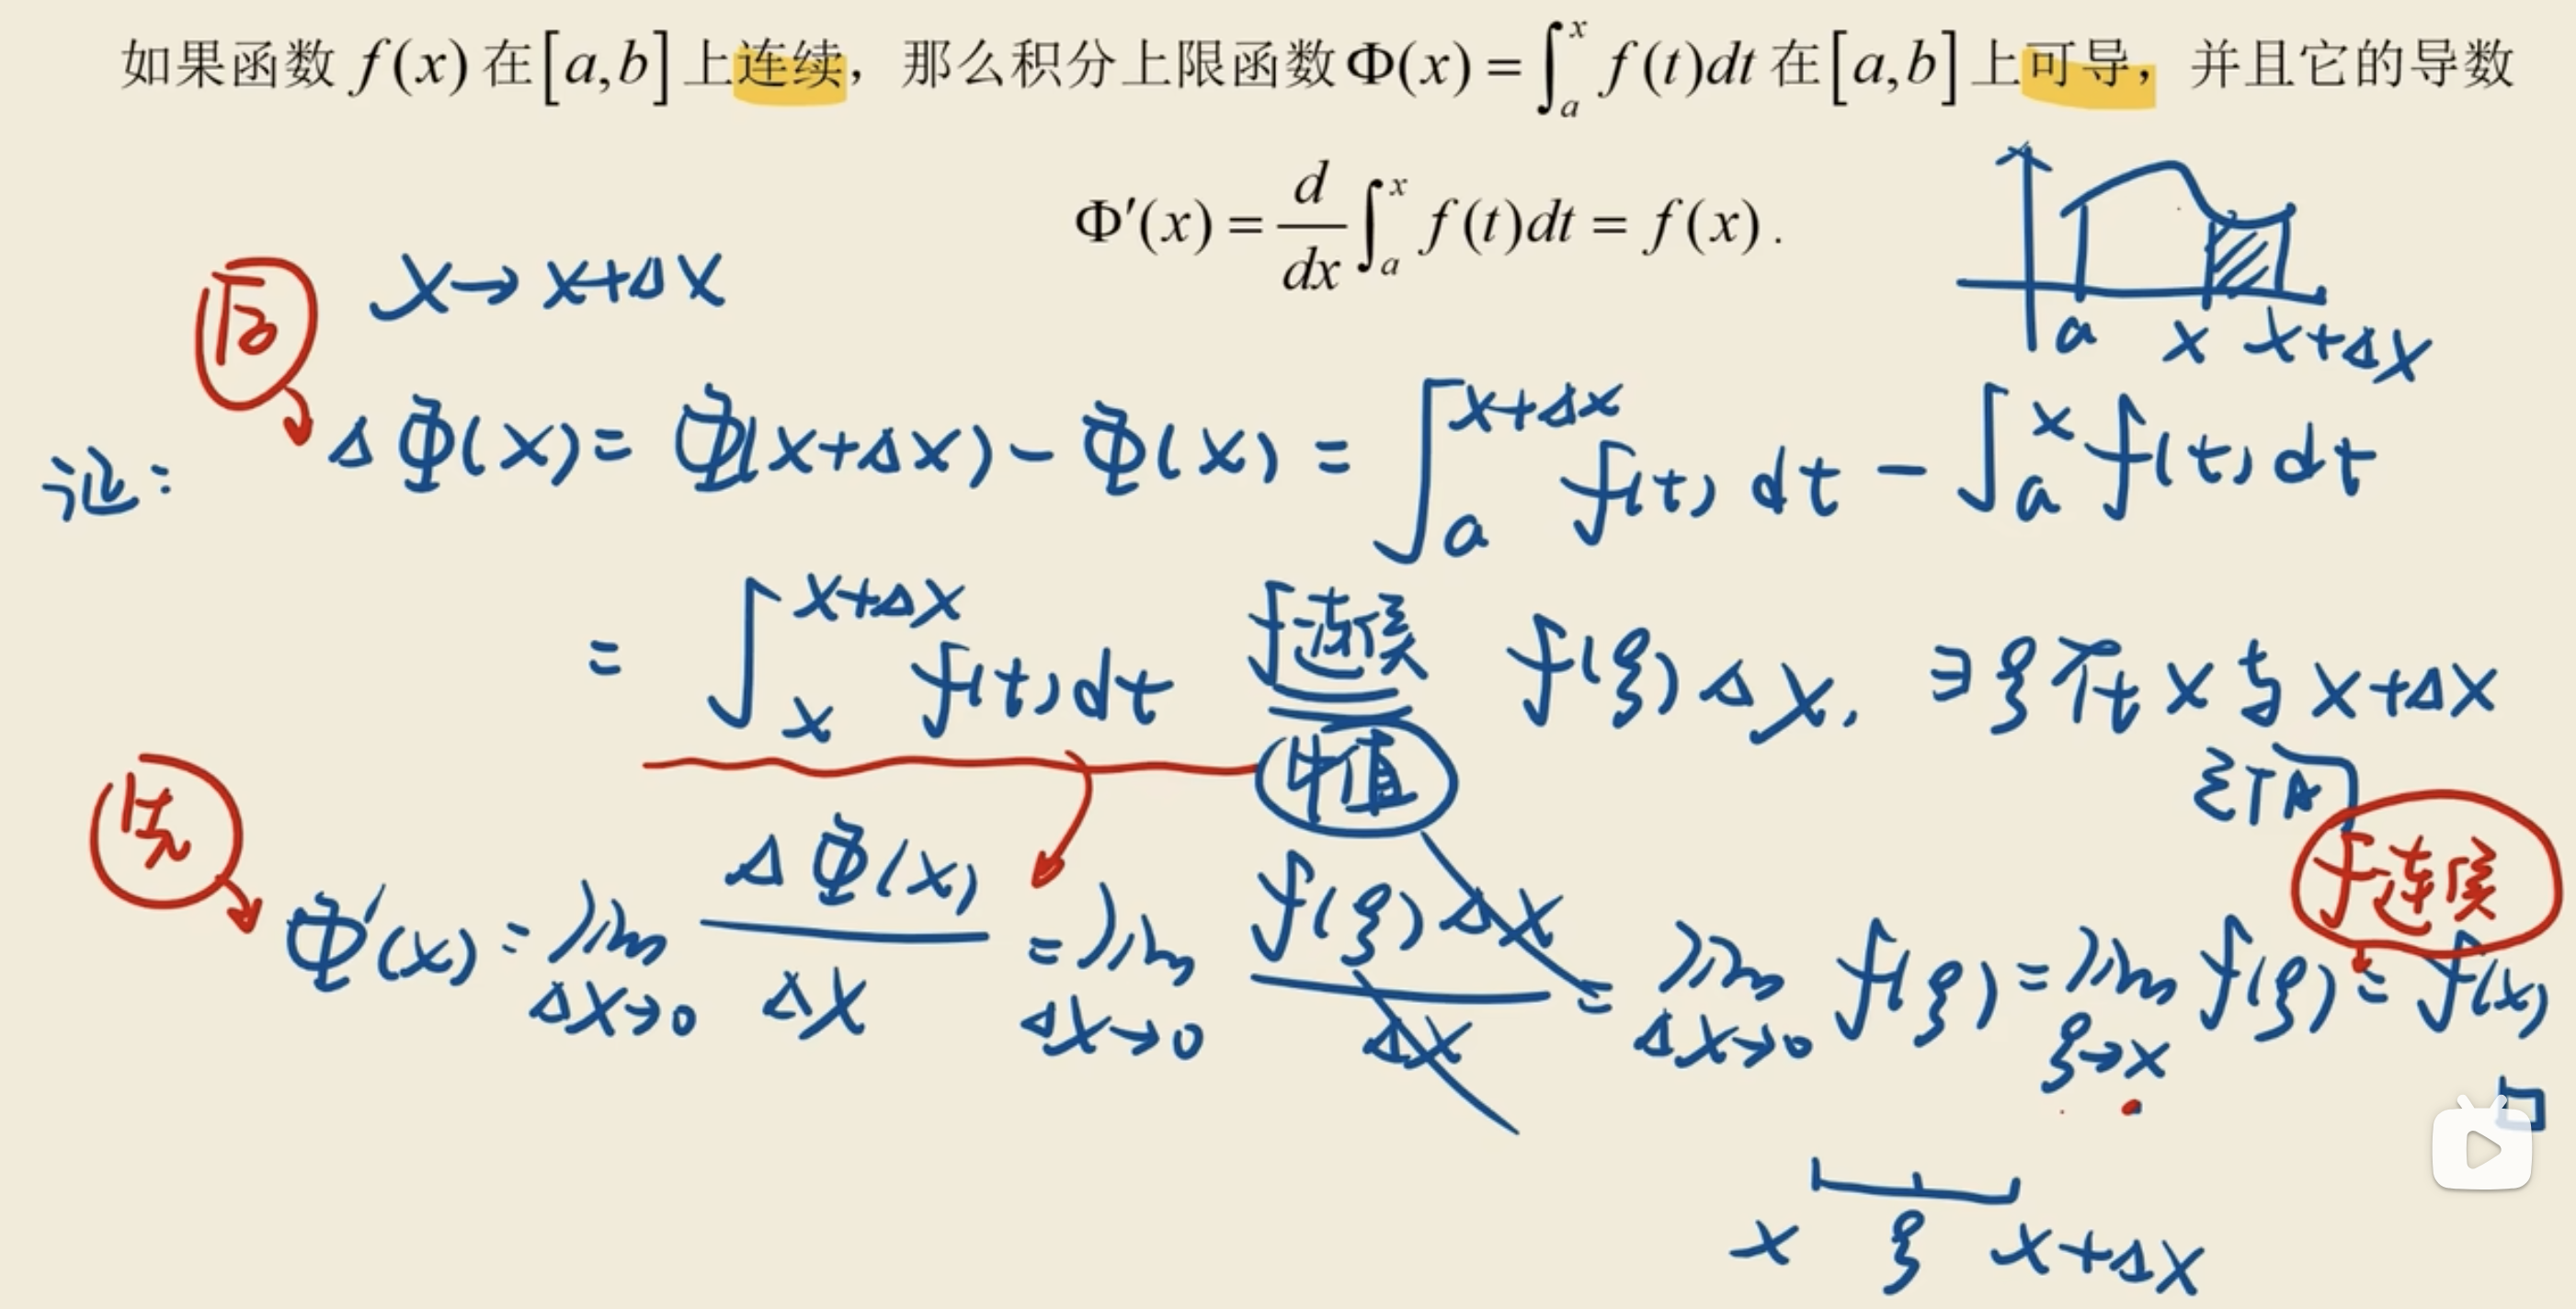 如果函数 f(x) 在[a,b]上连续，那么积分上限函数Φ(x)=∫ₐˣ f(t)dt 在[a,b]上可导，并且它的导数
Φ′(x)=d/dx ∫ₐˣ f(t)dt = f(x).
后 x→x+Δx
a x x+Δx
证: ΔΦ(x)=Φ(x+Δx)-Φ(x)=∫_a^{x+Δx} f(t)dt-∫_a^x f(t)dt
=∫_x^{x+Δx} f(t)dt f连续 中值 f(ξ)Δx, ∃ξ在x与x+Δx
之间
先 f连续
Φ′(x)=lim_{Δx→0} ΔΦ(x)/Δx =lim_{Δx→0} f(ξ)Δx/Δx =lim_{Δx→0} f(ξ)=lim_{ξ→x} f(ξ)=f(x)
x ξ x+Δx